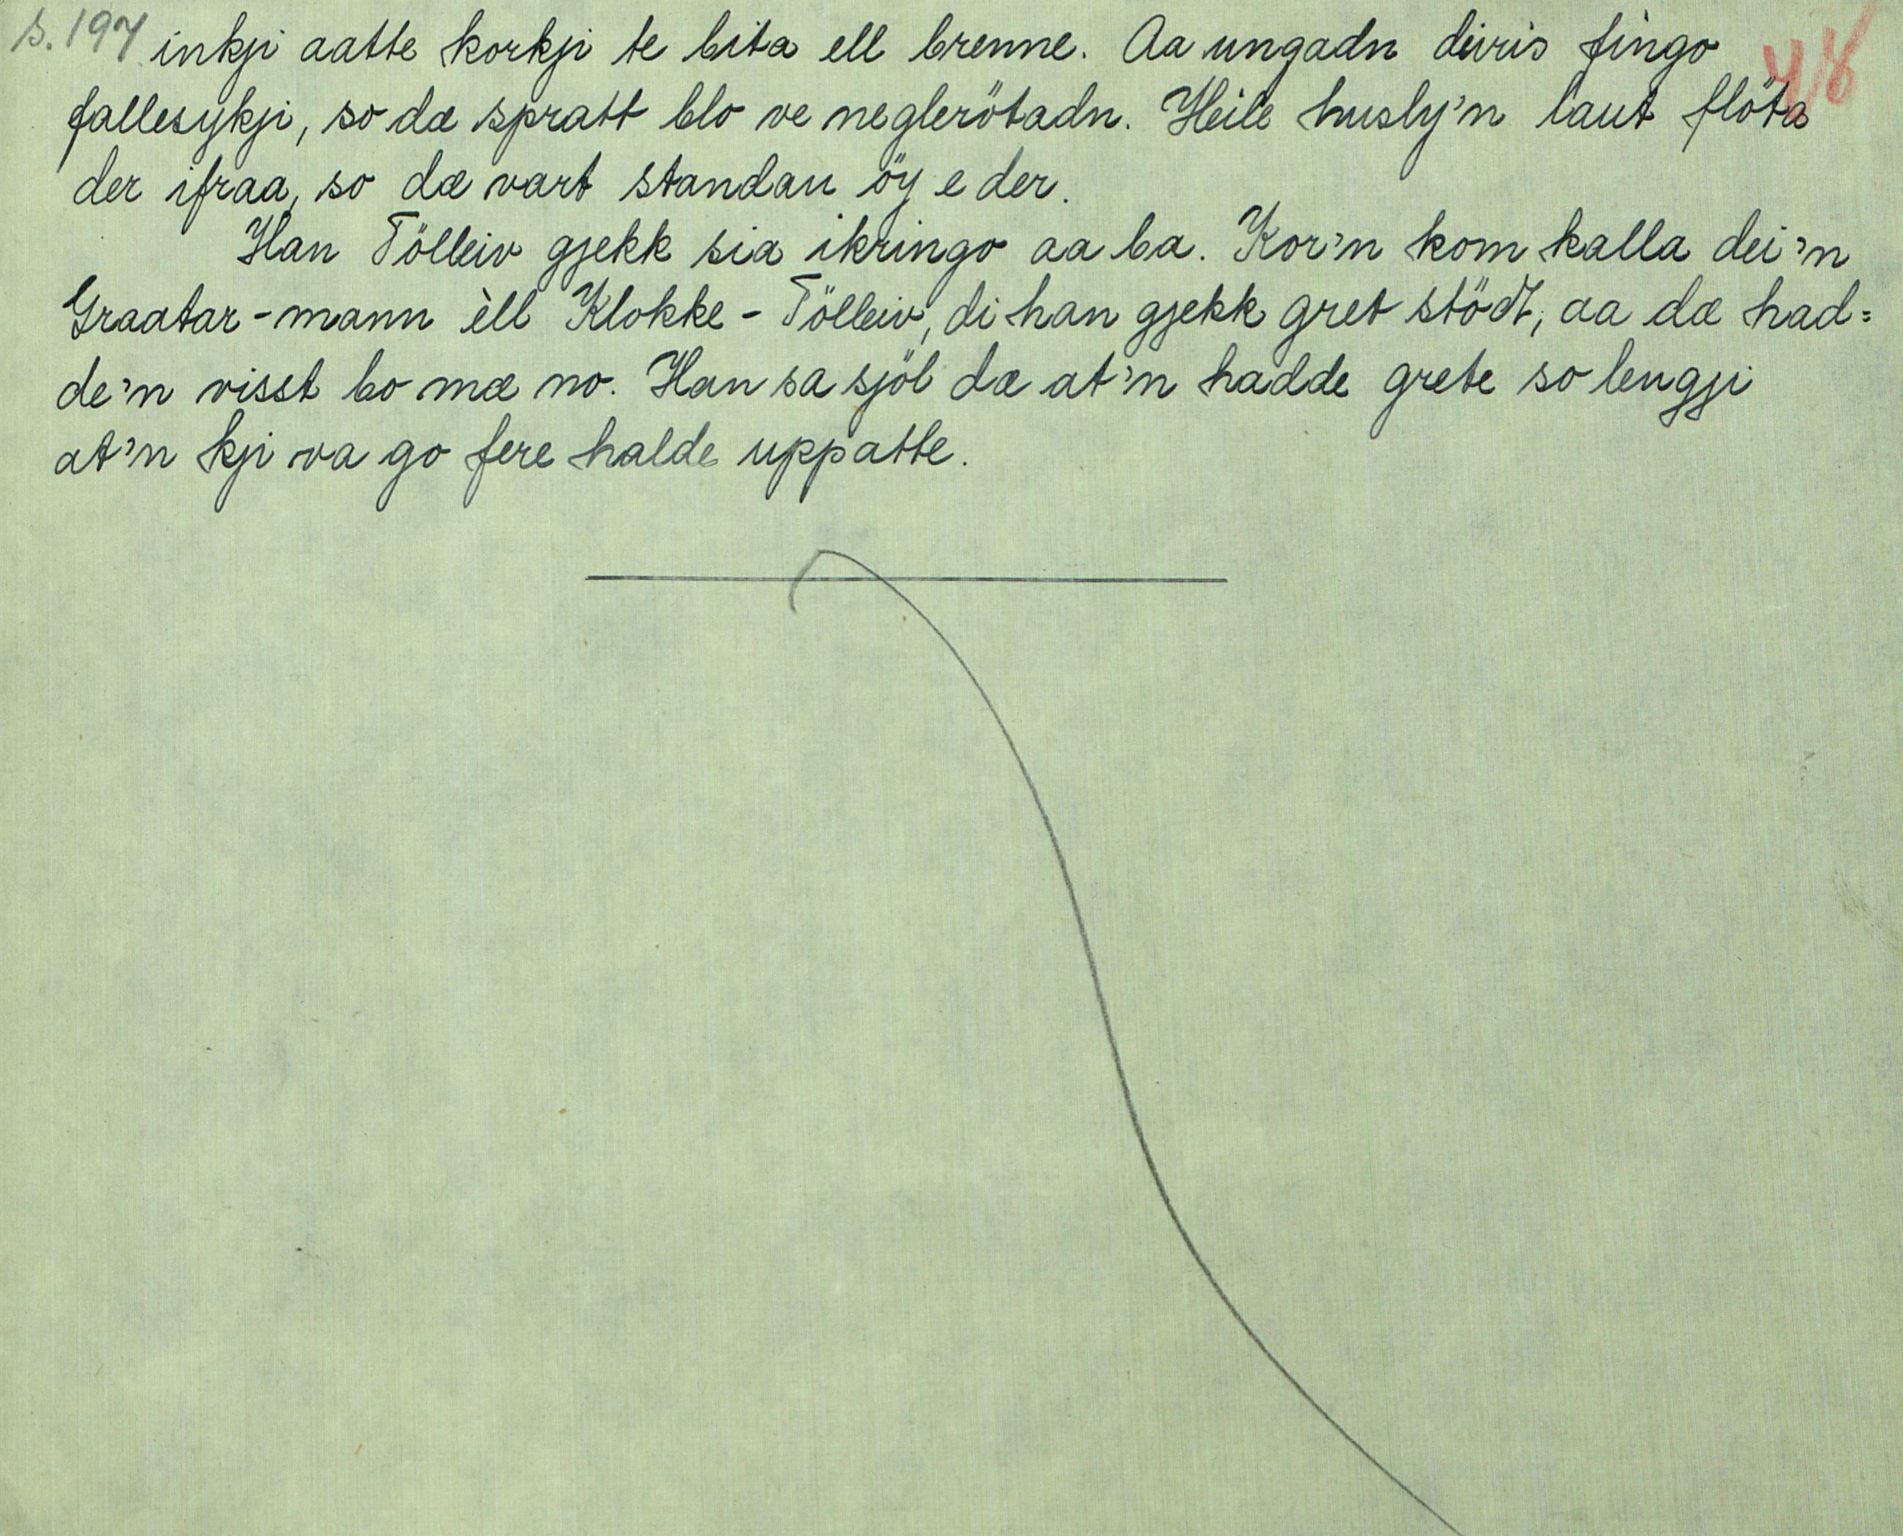 s. 197 inkji aatte korkji te bita ell brenne. Aa ungadn deiris fingo 48
fallesykji, so dæ spratt blo ve neglerötadn. Heile husly'n laut flöta
der ifraa, so dæ vart standau öy e der.
Han Tölleiv gjekk sia ikringo aa ba. Kor'n kom kalla dei 'n
Graatar-mann èll Klokke-Tölleiv, di han gjekk gret stödt, aa dæ had=
de'n visst bo mæ no. Han sa sjöl dæ at'n hadde grete so lengji
at'n kji va go fere halde uppatte.